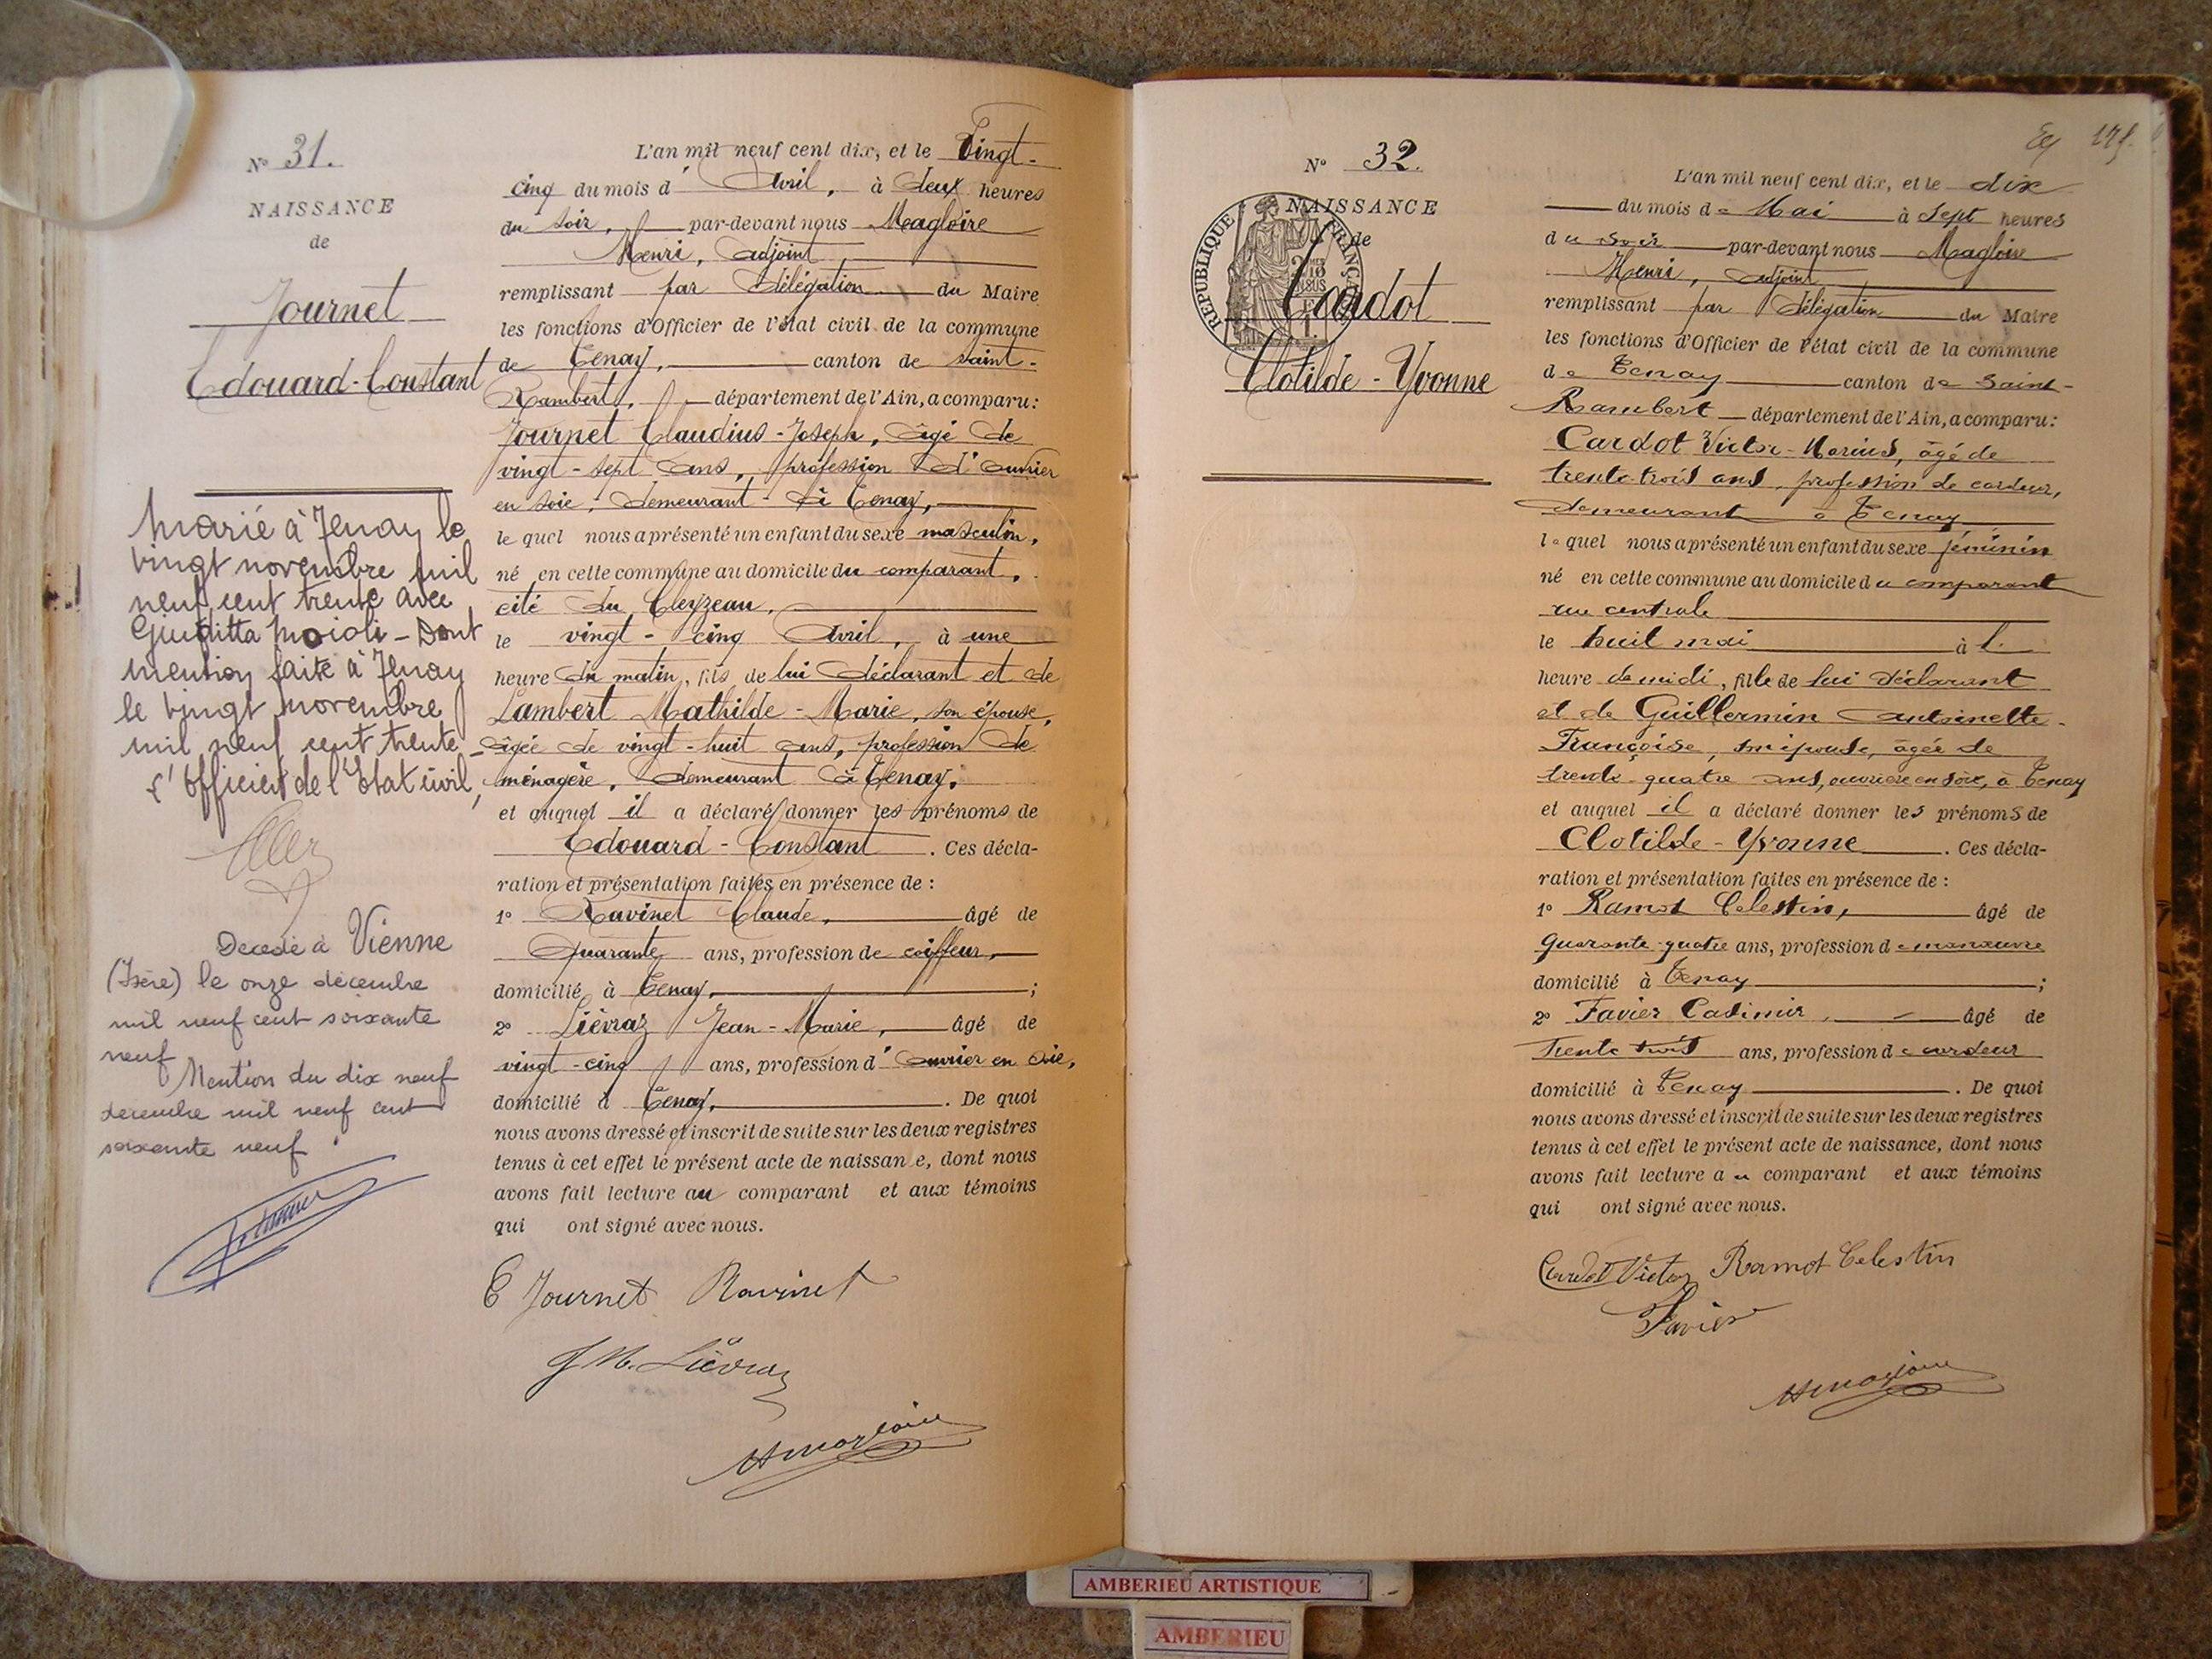 N° 31.
NAISSANCE
de
Journet
Edouard-Constant
Marié à Tenay le
vingt novembre mil
neuf cent trente avec
Giuditta Moioli - Dont
mention faite à Tenay
le vingt novembre
mil neuf cent trente -
l'Officier de l'Etat civil,
Décédé à Vienne
(Isère) le onze décembre
mil neuf cent soixante
neuf
Mention du dix neuf
décembre mil neuf cent
soixante neuf
L'an mil neuf cent dix, et le Vingt-
cinq du mois d' Avril, à deux heures
du soir, par-devant nous Magloire
Henri, adjoint
remplissant par délégation du Maire
les fonctions d'Officier de l'état civil de la commune
de Tenay, canton de saint-
Rambert, département de l'Ain, a comparu:
Journet Claudius-Joseph, âgé de
vingt-sept ans, profession d'ouvrier
en soie, demeurant à Tenay,
le quel nous a présenté un enfant du sexe masculin,
né en cette commune au domicile du comparant,
cité du Cleyzeau,
le vingt-cinq Avril, à une
heure du matin, fils de lui déclarant et de
Lambert Mathilde-Marie, son épouse,
âgée de vingt-huit ans, profession de
ménagère, demeurant à Tenay,
et auquel il a déclaré donner les prénoms de
Edouard-Constant. Ces décla-
ration et présentation faites en présence de :
1° Ravinet Claude, âgé de
Quarante ans, profession de coiffeur,
domicilié à Tenay, ;
2° Liévraz Jean-Marie, âgé de
vingt-cinq ans, profession d'ouvrier en soie,
domicilié à Tenay, . De quoi
nous avons dressé et inscrit de suite sur les deux registres
tenus à cet effet le présent acte de naissan e, dont nous
avons fait lecture au comparant et aux témoins
qui ont signé avec nous.
C Journet Ravinet
J M. Liévraz
HMagloire
175.
N° 32.
NAISSANCE
de
REPUBLIQUE FRANÇAISE
Cardot
Clotilde-Yvonne
L'an mil neuf cent dix, et le dix
du mois de Mai à Sept heures
du soir par-devant nous Magloire
Henri, adjoint
remplissant par délégation du Maire
les fonctions d'Officier de l'état civil de la commune
de Tenay canton de Saint-
Rambert département de l'Ain, a comparu:
Cardot Victor-Marius, âgé de
trente-trois ans, profession de cardeur,
demeurant à Tenay
le quel nous a présenté un enfant du sexe féminin
né en cette commune au domicile du comparant
rue centrale
le huit mai à l'
heure de midi, fille de lui déclarant
et de Guillermin Antoinette-
Françoise, son épouse, âgée de
trente quatre ans, ouvrière en soie, à Tenay
et auquel il a déclaré donner les prénoms de
Clotilde-Yvonne. Ces décla-
ration et présentation faites en présence de :
1° Ramot Celestin, âgé de
quarante-quatre ans, profession de manœuvre
domicilié à Tenay ;
2° Favier Casimir, âgé de
trente trois ans, profession de cardeur
domicilié à Tenay . De quoi
nous avons dressé et inscrit de suite sur les deux registres
tenus à cet effet le présent acte de naissance, dont nous
avons fait lecture au comparant et aux témoins
qui ont signé avec nous.
Cardot Victor Ramot Celestin
Favier
HMagloire
AMBERIEU ARTISTIQUE
AMBERIEU